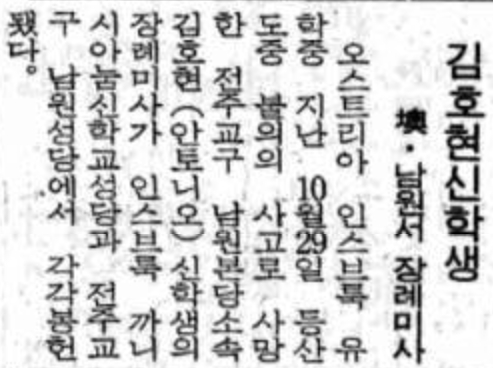 김호현신학생
墺·남원서 장례미사
오스트리아 인스브룩 유
학중 지난 10월29일 등산
도중 불의의 사고로 사망
한 전주교구 남원본당소속
김호현(안토니오) 신학생의
장례미사가 인스브룩 까니
시아눔신학교성당과 전주교
구 남원성당에서 각각봉헌
됐다.